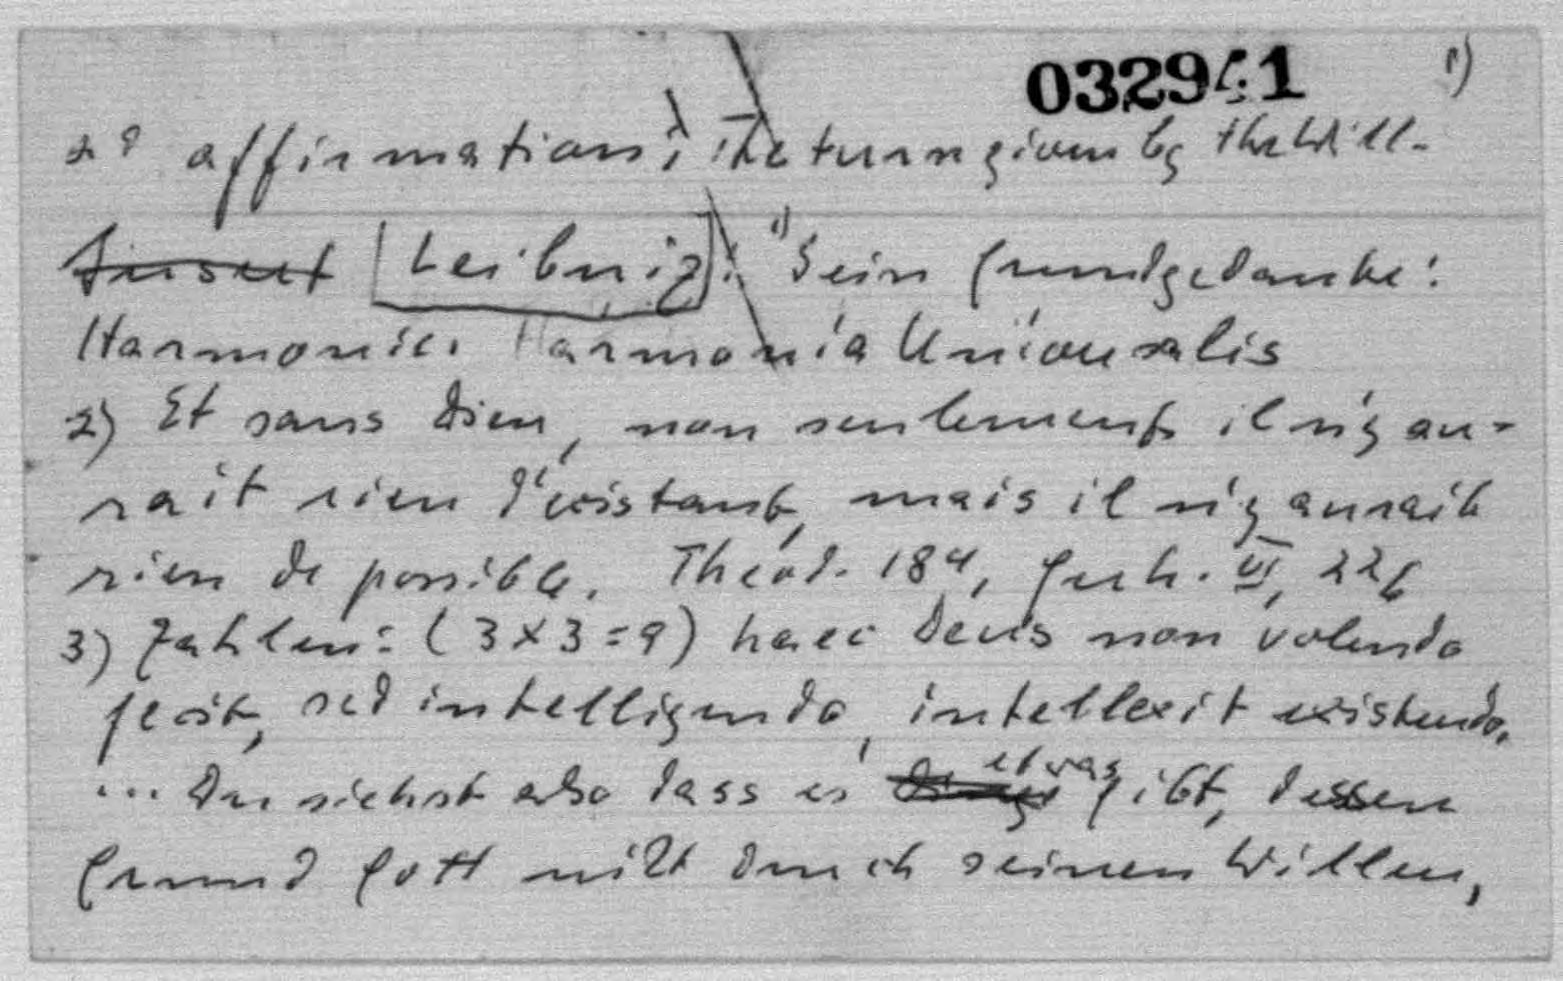 032941 1)
affirmations; The turn given by the Will.
Insert [Leibniz]: 1) Sein Grundgedanke:
Harmonie. Harmonia Universalis
2) Et sans Dieu, non seulement il n'y au-
rait rien d'existant, mais il n'y aurait
rien de possible. Théod. 184, Gerh. VI, 226
3) Zahlen: (3 x 3 = 9) haec Deus non volendo
fecit, sed intelligendo, intellexit existendo.
... Du siehst also dass es etwas gibt, dessen
Grund Gott nicht durch seinen Willen,